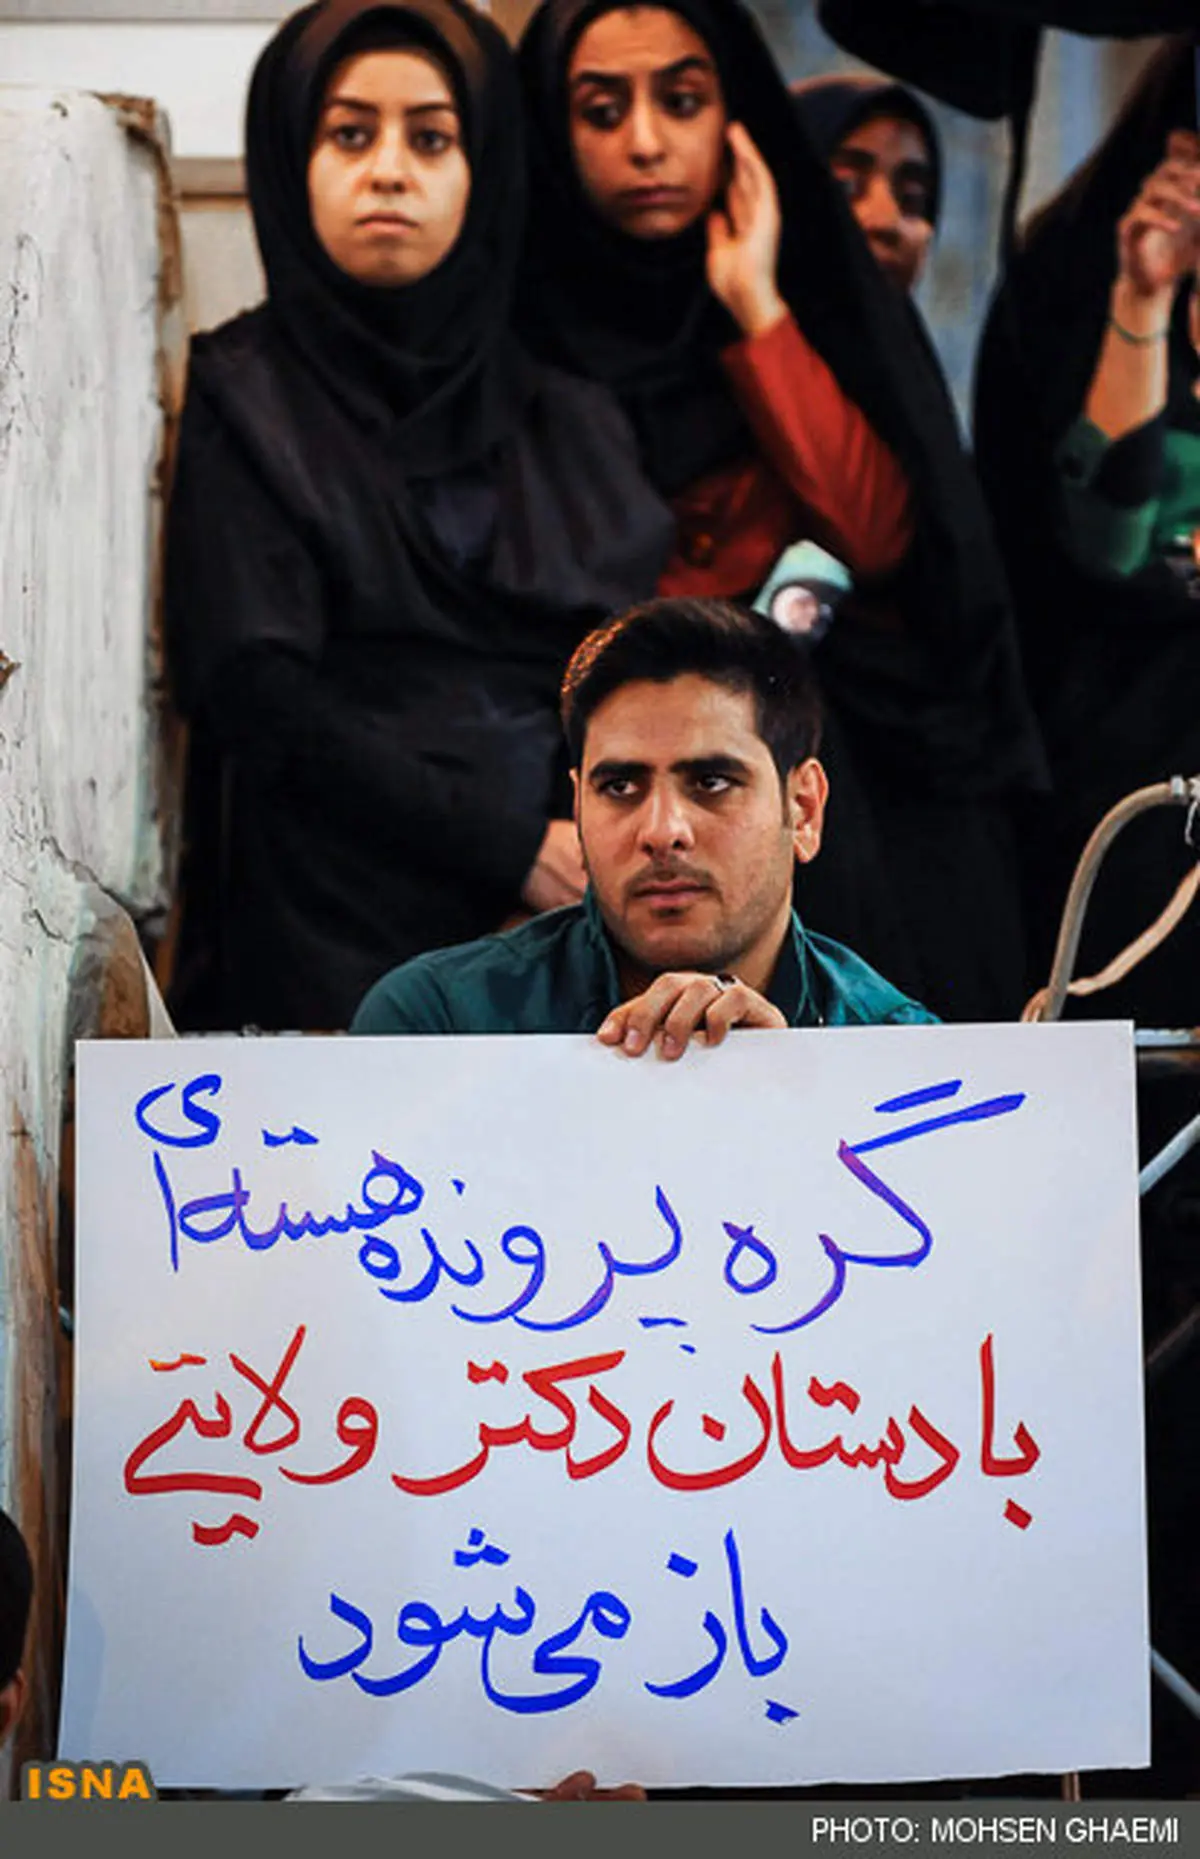 گره پرونده هسته‌ای
با دستان دکتر ولایتی
باز می‌شود
ISNA
PHOTO: MOHSEN GHAEMI